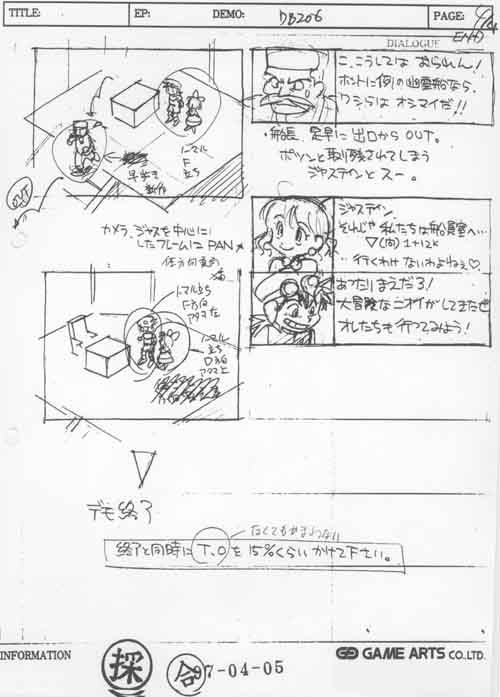 TITLE:
EP:
DEMO: DB206
PAGE: 4/4
END
DIALOGUE
こ、こうしては おられん!
ホントに例の幽霊船なら、
ワシらは オシマイだ!!
・船長、足早に出口からOUT。
ポツンと取り残されてしまう
ジャスティンとスー。
ノーマル
F
立ち
早歩き
OUT
カメラ、ジャスを中心に
したフレームにPAN
ジャスティン、
それじゃ私たちは船員室へ…
▽(同)
…行くわけないわよねぇ♡
あったりまえだろ!
大冒険なニオイがしてきたぜ
オレたちも行ってみよう!
ノーマル立ち
F方向
ノーマル
立ち
D方向
デモ終了
なくてもかまわない
終了と同時にT.Oを15%くらいかけて下さい。
INFORMATION
採
合
97-04-05
GAME ARTS CO.,LTD.